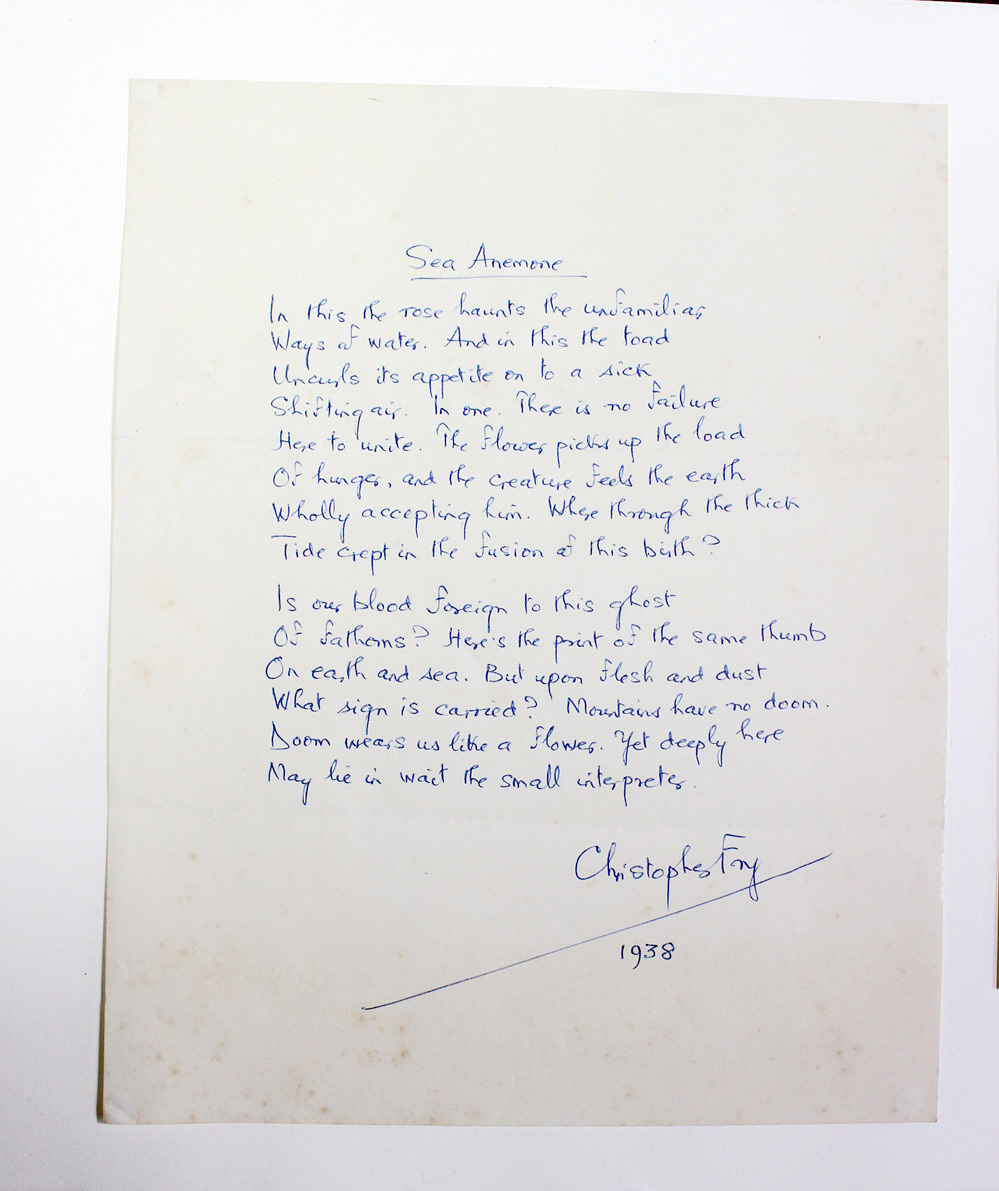 Sea Anemone
In this the rose haunts the unfamiliar
Ways of water. And in this the toad
Uncurls its appetite on to a sick
Shifting air. In one. There is no failure
Here to unite. The flower picks up the load
Of hunger, and the creature feels the earth
Wholly accepting him. Where through the thick
Tide crept in the fusion of this birth?
Is our blood foreign to this ghost
Of fathoms? Here's the print of the same thumb
On earth and sea. But upon flesh and dust
What sign is carried? Mountains have no doom.
Doom wears us like a flower. Yet deeply here
May lie in wait the small interpreter.
Christopher Fry
1938